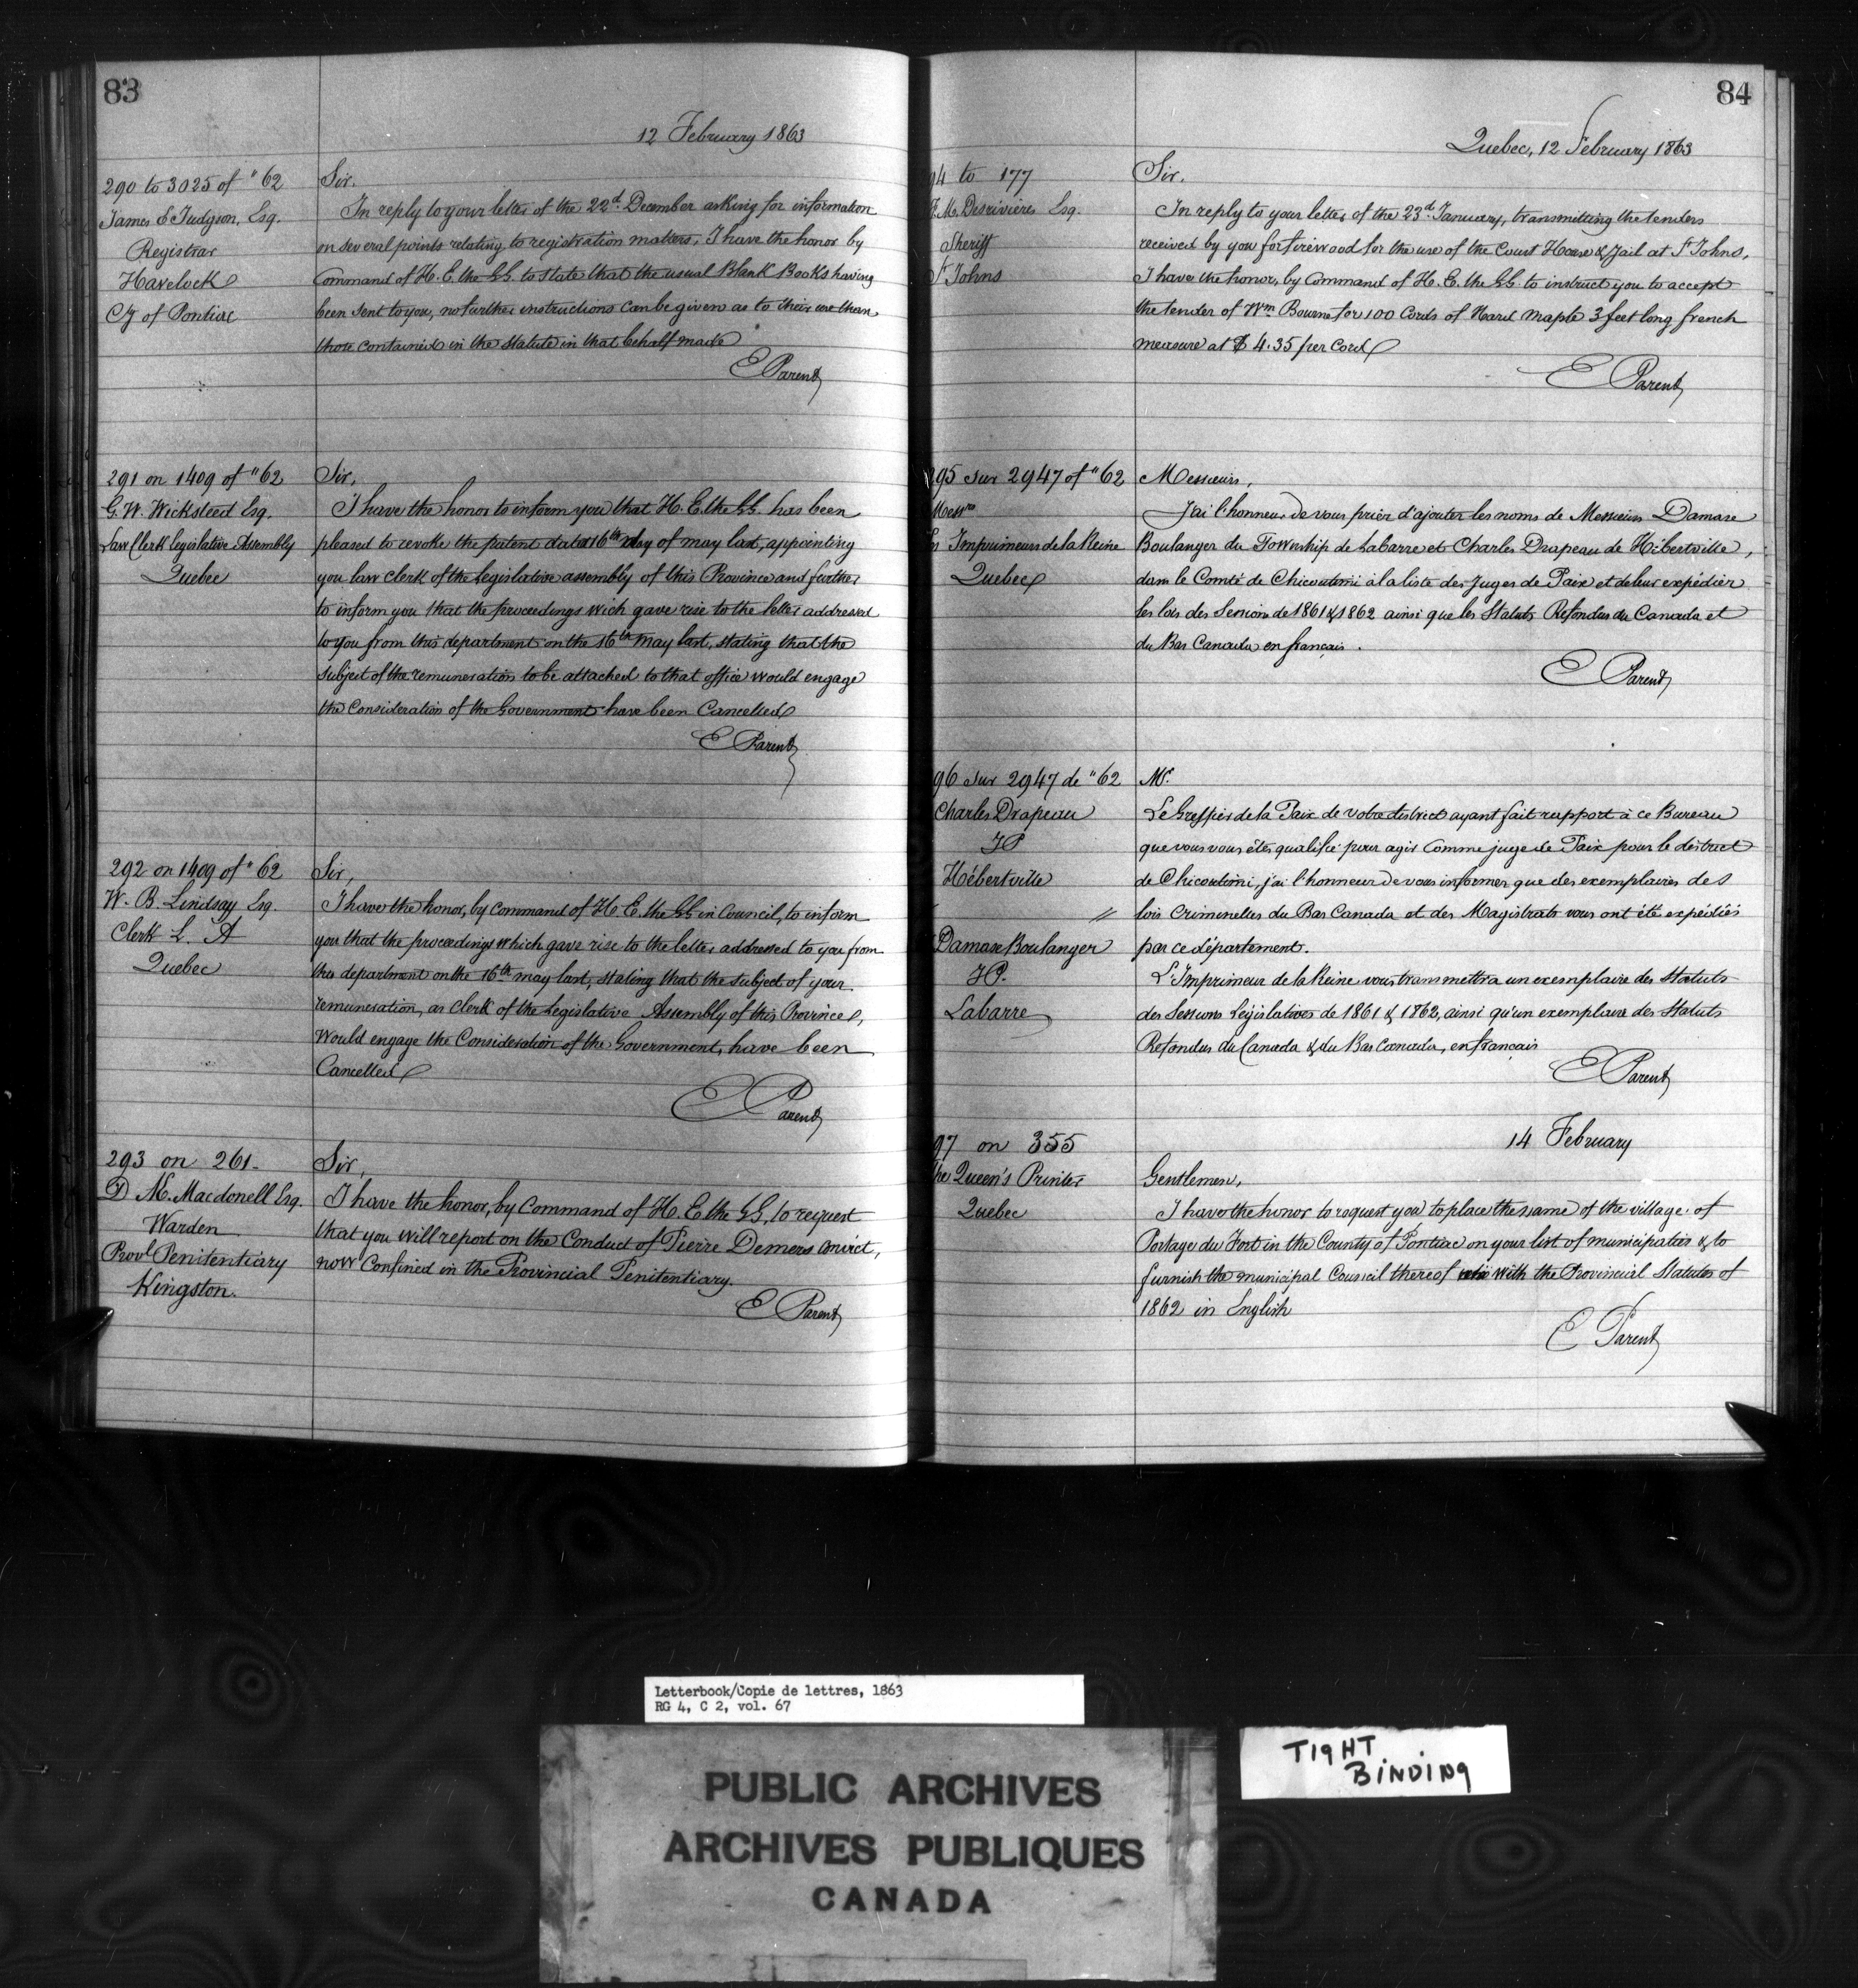 83
12 February 1863
290 to 3025 of "62
James S Judgson, Esq.
Registrar
Havelock
Cy of Pontiac
Sir.
In reply to your letter of the 22d. December asking for information
on several points relating to registration matters, I have the honor by
Command of H. E. the GG. to state that the usual Blank Books having
been sent to you, no further instructions can be given as to their use than
those contained in the Statute in that behalf made
E Parent
291 on 1409 of "62
G. W. Wicksteed Esq.
Law Clerk Legislative Assembly
Quebec
Sir,
I have the honor to inform you that H. E. the GG. has been
pleased to revoke the patent dated 16th day of may last, appointing
you law Clerk of the Legislative assembly of this Province and further
to inform you that the proceedings wich gave rise to the letter addressed
to you from this department on the 16th may last, stating that the
subject of the remuneration to be attached to that office would engage
the Consideration of the Government have been Cancelled
E Parent
292 on 1409 of "62
W. B. Lindsay Esq.
Clerk L. A
Quebec
Sir,
I have the honor, by Command of H. E. the GG in Council, to inform
you that the proceedings which gave rise to the letter addressed to you from
this department on the 16th may last, stating that the subject of your
remuneration, as Clerk of the Legislative Assembly of this Province,
Would engage the Consideration of the Government, have been
Cancelled
E Parent
293 on 261-
D M. Macdonell Esq.
Warden
Provl Penitentiary
Kingston.
Sir,
I have the honor, by Command of H. E. the GG, to request
that you will report on the Conduct of Pierre Demers convict,
now Confined in the Provincial Penitentiary.
E Parent
84
Quebec, 12 February 1863
94 to 177
M. Desrivières Esq.
Sheriff
St Johns
Sir.
In reply to your letter of the 23d January, transmitting the tenders
received by you for firewood for the use of the Court House & Jail at St Johns,
I have the honor, by Command of H. E. the GG. to instruct you to accept
the tender of Wm Bourne for 100 Cords of Hard Maple 3 feet long french
measure at $ 4.35 per Cord
E Parent
295 sur 2947 of "62
Messrs
Les Imprimeurs de la Reine
Quebec
Messieurs,
J'ai l'honneur de vous prier d'ajouter les noms de Messieurs Damase
Boulanger du Township de Labarre et Charles Drapeau de Hébertville,
dans le Comté de Chicoutimi à la liste des Juges de Paix et de leur expédier
les lois des Sessions de 1861 & 1862 ainsi que les Statuts Refondus du Canada et
du Bas Canada en français.
E Parent
96 sur 2947 de "62
Charles Drapeau
JP
Hébertville
"
Damase Boulanger
JP.
Labarre
Mr.
Le Greffier de la Paix de votre district ayant fait rapport à ce Bureau
que vous vous êtes qualifié pour agir Comme juge de Paix pour le district
de Chicoutimi, j'ai l'honneur de vous informer que des exemplaires des
lois Criminelles du Bas Canada et des Magistrats vous ont été expédiés
par ce département.
L'Imprimeur de la Reine vous transmettra un exemplaire des Statuts
des Sessions Législatives de 1861 & 1862, ainsi qu'un exemplaire des Statuts
Refondus du Canada & du Bas Canada, en français
E Parent
97 on 355
The Queen's Printer
Quebec
14 February
Gentlemen,
I have the honor to request you to place the name of the village of
Portage du Fort in the County of Pontiac on your list of municipaties & to
furnish the municipal Council thereof with the Provincial Statutes of
1862 in English
E Parent
Letterbook/Copie de lettres, 1863
RG 4, C 2, vol. 67
TIGHT
BINDING
PUBLIC ARCHIVES
ARCHIVES PUBLIQUES
CANADA